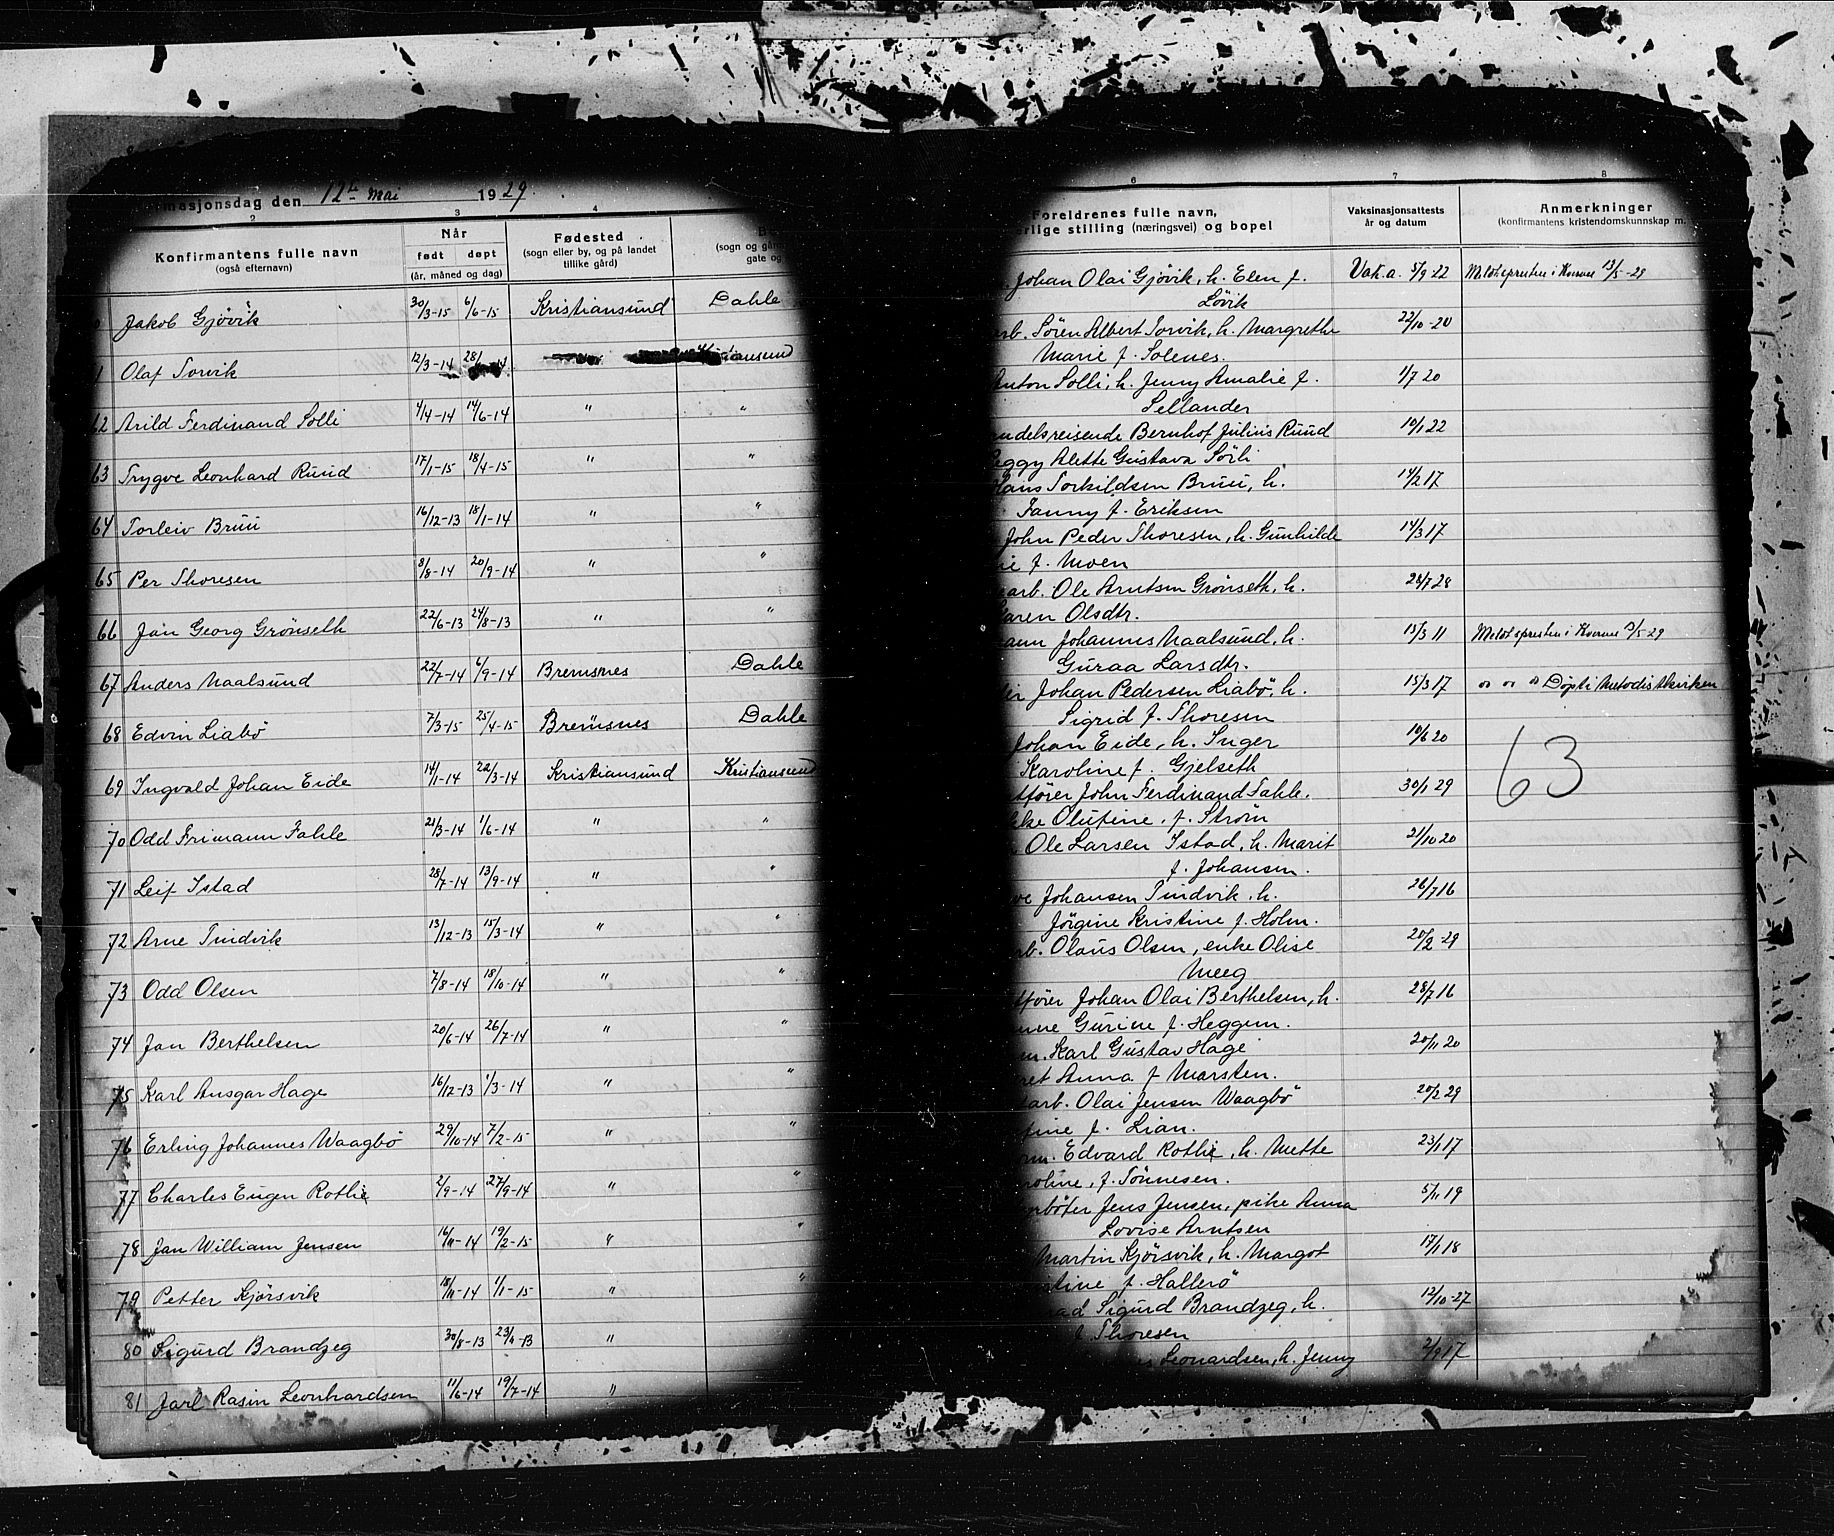 masjonsdag den 12te Mai 1929.
2 3 4
Konfirmantens fulle navn
(også efternavn)
Når
født døpt
(år, måned og dag)
Fødested
(sogn eller by, og på landet
tillike gård)
(sogn og gård
gate og
Jakob Gjövik 30/3-15 6/6-15 Kristiansund Dahle
Olaf Torvik 12/3-14
62 Arild Ferdinand Solli 4/4-14 14/6-14 " "
63 Trygve Leonhard Ruud 17/1-15 18/4-15 " "
64 Torleiv Bruu 16/12-13 18/1-14 " "
65 Per Thoresen 8/8-14 20/9-14 " "
66 Jan Georg Grönseth 22/6-13 24/8-13 " "
67 Anders Naalsund 22/7-14 6/9-14 Bremsnes Dahle
68 Edvin Liabö 7/3-15 25/4-15 Bremsnes Dahle
69 Ingvald Johan Eide 14/1-14 22/3-14 Kristiansund Kristiansund
70 Odd Frimann Fahle 21/3-14 1/6-14 " "
71 Leif Istad 28/7-14 13/9-14 " "
72 Arne Tindvik 13/12-13 15/3-14 " "
73 Odd Olsen 7/8-14 18/10-14 " "
74 Jan Berthelsen 20/6-14 26/7-14 " "
75 Karl Ansgar Hage 16/12-13 1/3-14 " "
76 Erling Johannes Waagbö 29/10-14 7/2-15 " "
77 Charles Eugen Rothe 2/9-14 27/9-14 " "
78 Jan William Jensen 16/11-14 19/2-15 " "
79 Petter Kjörsvik 18/11-14 1/1-15 " "
80 Sigurd Brandzeg 30/8-13 " 
81 Jarl Rasin Leonhardsen 11/6-14 19/7-14 "
6 7 8
Foreldrenes fulle navn,
rlige stilling (næringsvei) og bopel
Vaksinasjonsattests
år og datum
Anmerkninger
(konfirmantens kristendomskunnskap m.
Johan Olai Gjövik, h. Elen f. Vak. a. 5/9 22 Meldt spresten i Kvernes 13/5-29
Lövik
arb. Sören Albert Torvik, h. Margrethe 22/10-20
Marie f. Solenes.
Anton Solli, h. Jenny Amalie f. 1/7 20
Sellander
ndelsreisende Bernhof Julius Ruud 10/1 22
eggy Alette Gustava Sörli
Hans Torkildsen Bruu, h. 14/2 17
Fanny f. Eriksen
John Peder Thoresen, h. Gunhilde 14/3 17
ie f. Moen
arb. Ole Arntsen Grönseth, h. 28/7 28
Karen Olsdtr.
ann Johannes Naalsund, h. 15/3 11 Meldt spresten i Kvernes 13/5-29
Guraa Larsdtr.
Johan Pedersen Liabö, h. 15/3 17 " " " Döpt i Metodistkirken
Sigrid f. Thoresen
Johan Eide, h. Inger 10/6 20
Karoline f. Gjelseth
63
tförer John Ferdinand Fahle. 30/1 29
kke Olufine, f. Ström
Ole Larsen Istad, h. Marit 21/10 20
f. Johansen.
Johansen Tindvik, h. 26/7 16
Jörgine Kristine f. Holm.
rb. Olaus Olsen, enke Olise 20/2 29
Meeg
tförer Johan Olai Berthelsen, h. 28/7 16
nne Gurine f. Heggem.
m. Karl Gustav Hage 20/11 20
ret Anna f. Marsten.
arb. Olai Jensen Waagbö 20/2 29
tine f. Lian.
rm. Edvard Rothe, h. Mette 23/1 17
roline, f. Tönnesen.
nböter Jens Jensen, pike Anna 5/11 19
Lovise Arntsen
Martin Kjörsvik, h. Margot 17/1 18
stine f. Hallerö
Sigurd Brandzeg, h. 12/10-27
f. Thoresen
Leonardsen, h. Jenny 2/9 17